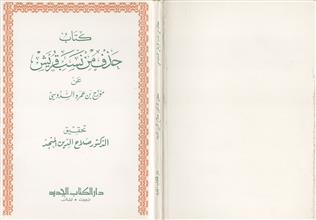 كتاب
حذف من نسب قريش
عن
مؤرج بن عمرو السدوسي
تحقيق
الدكتور صلاح الدين المنجد
دار الكتاب الجديد
بيروت - لبنان